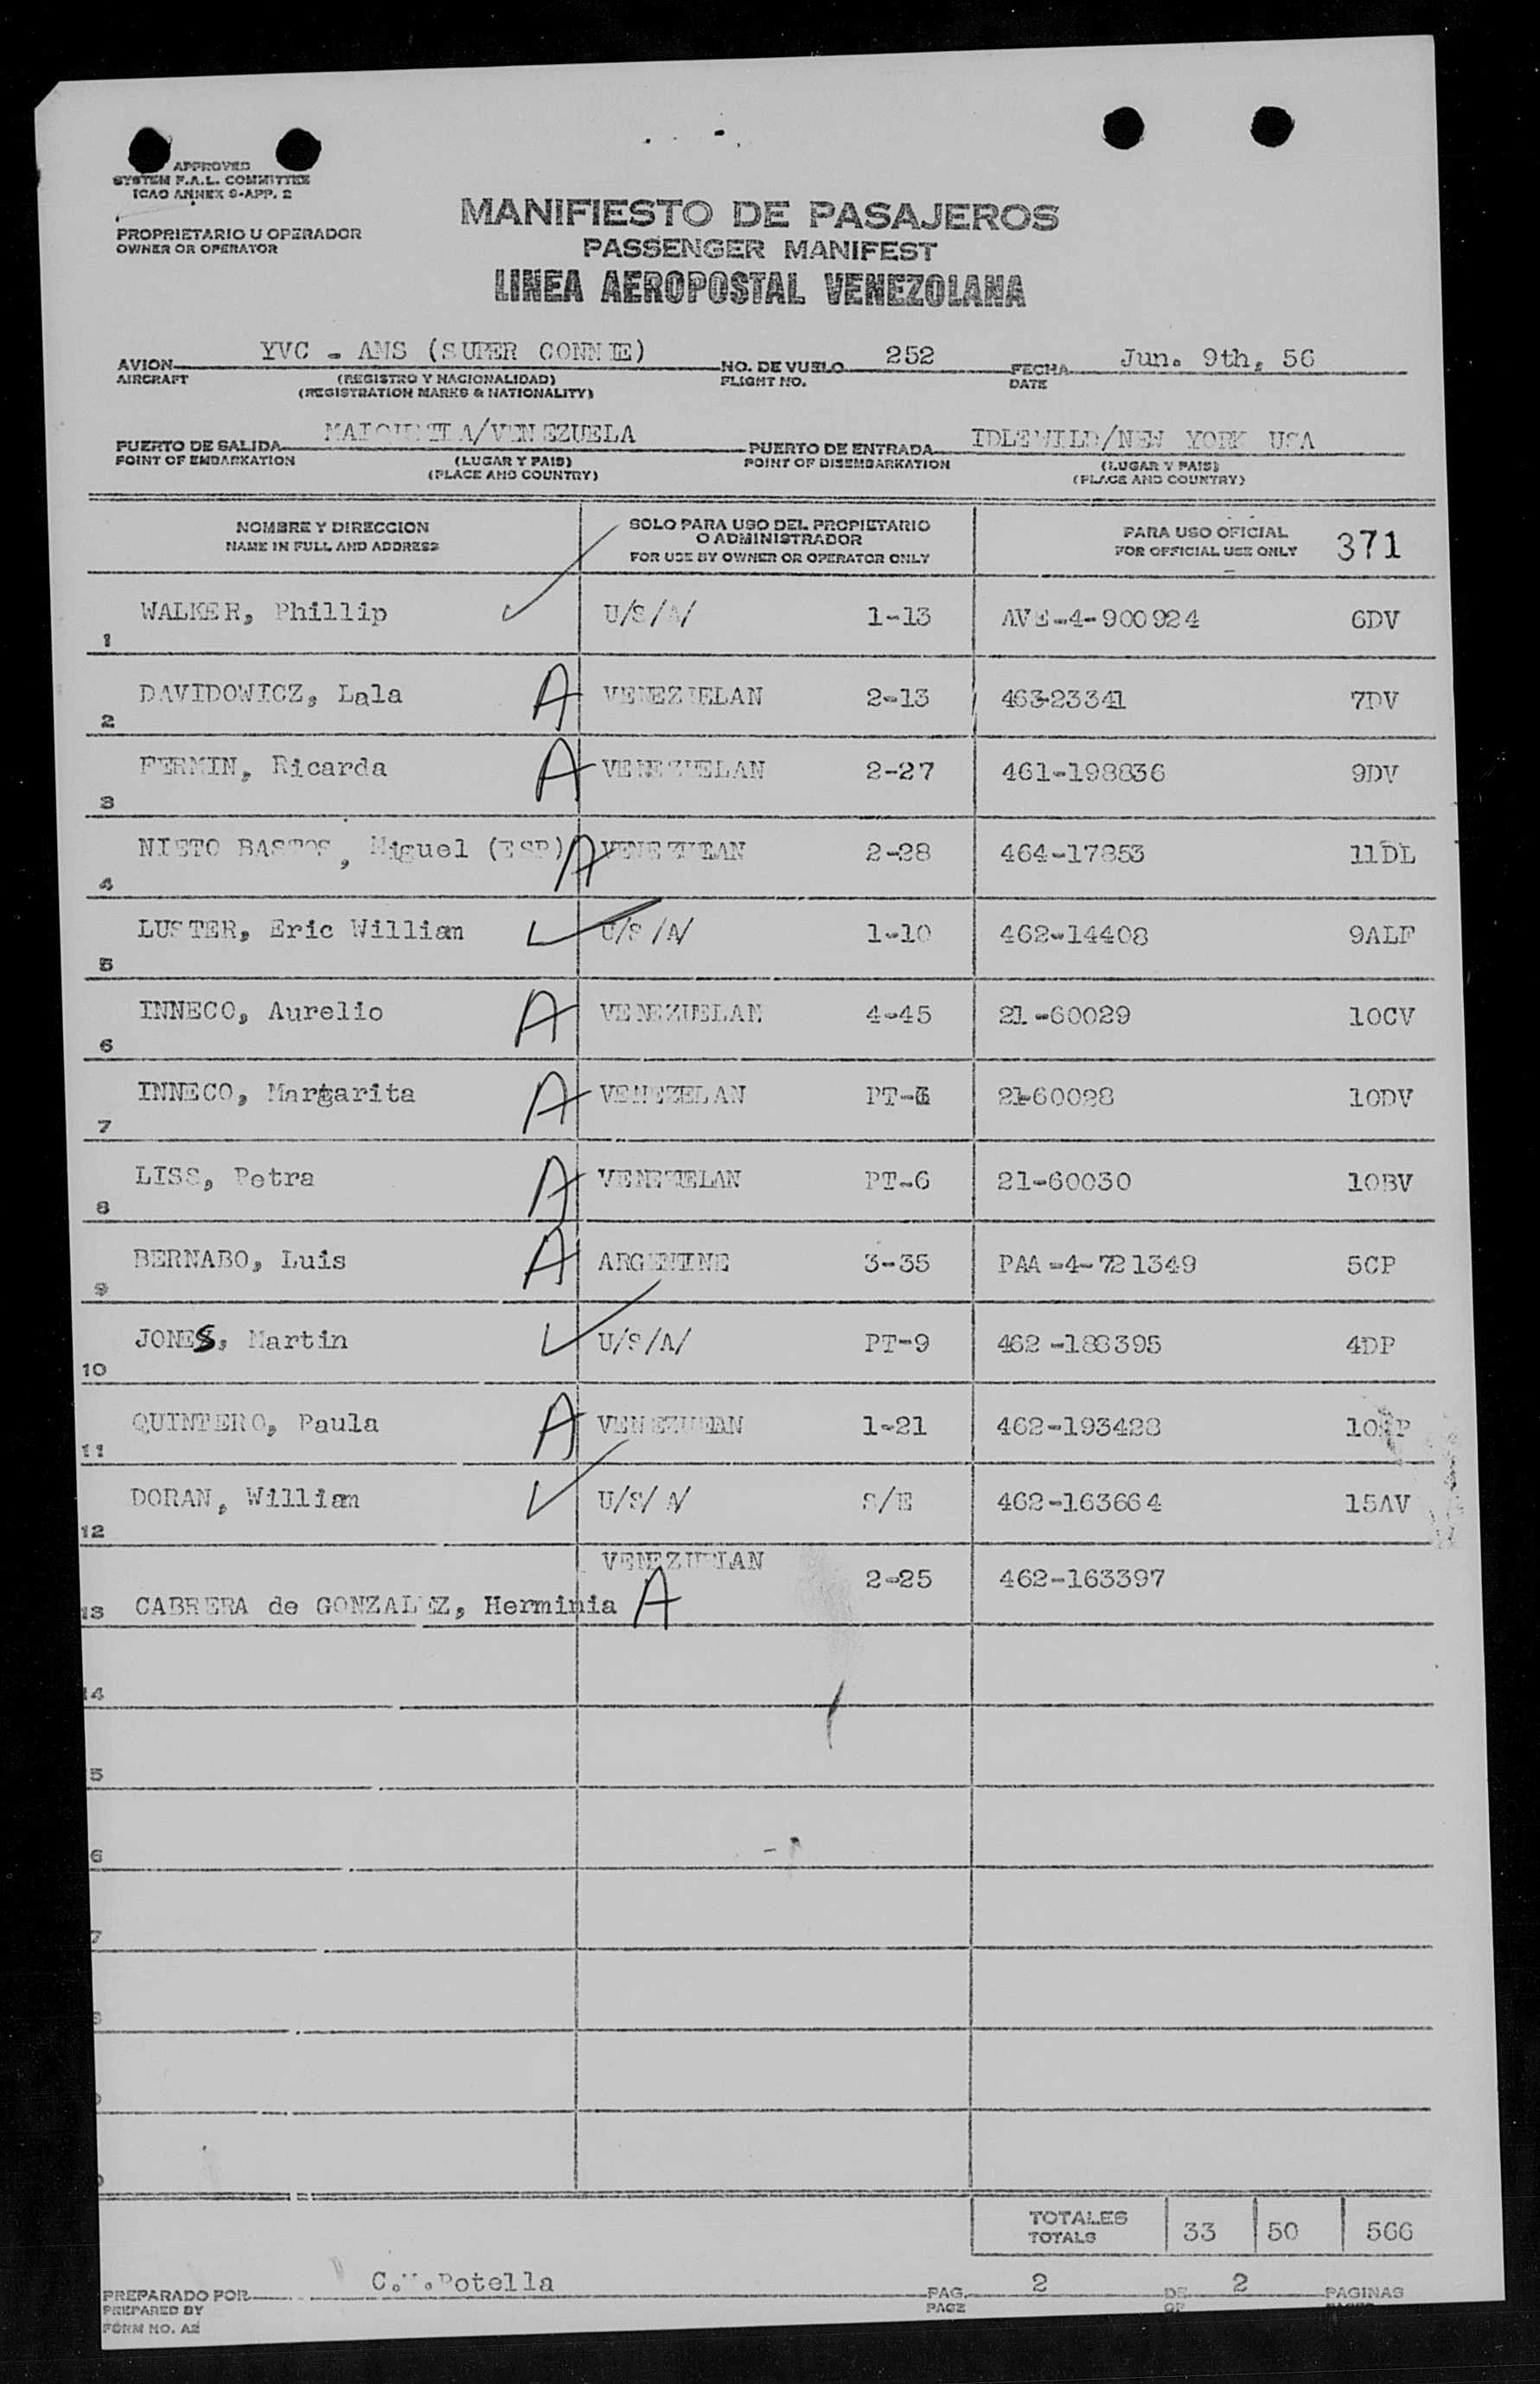 APPROVED
SYSTEM F.A.L. COMMITTEE
ICAO ANNEX 9-APP. 2
PROPRIETARIO U OPERADOR
OWNER OR OPERATOR
MANIFIESTO DE PASAJEROS
PASSENGER MANIFEST
LINEA AEROPOSTAL VENEZOLANA
AVION YVC - AMS (SUPER CONNIE) NO. DE VUELO 252 FECHA Jun. 9th, 56
AIRCRAFT (REGISTRO Y NACIONALIDAD) FLIGHT NO. DATE
(REGISTRATION MARKS & NATIONALITY)
PUERTO DE SALIDA MAIQUETIA/VENEZUELA PUERTO DE ENTRADA IDLEWILD/NEW YORK USA
POINT OF EMBARKATION (LUGAR Y PAIS) POINT OF DISEMBARKATION (LUGAR Y PAIS)
(PLACE AND COUNTRY) (PLACE AND COUNTRY)
NOMBRE Y DIRECCION SOLO PARA USO DEL PROPIETARIO O ADMINISTRADOR PARA USO OFICIAL 371
NAME IN FULL AND ADDRESS FOR USE BY OWNER OR OPERATOR ONLY FOR OFFICIAL USE ONLY
1 WALKER, Phillip U/S/A/ 1-13 AVE-4-900924 6DV
2 DAVIDOWICZ, Lala A VENEZUELAN 2-13 463-23341 7DV
3 FERMIN, Ricarda A VENEZUELAN 2-27 461-198836 9DV
4 NIETO BASTOS, Miguel (ESP) A VENEZUELAN 2-28 464-17853 11DL
5 LUSTER, Eric William U/S/A/ 1-10 462-14408 9ALF
6 INNECO, Aurelio A VENEZUELAN 4-45 21-60029 10CV
7 INNECO, Margarita A VENEZELAN 21-60028 10DV
8 LISS, Petra A VENEZUELAN PT-6 21-60030 10BV
9 BERNABO, Luis A ARGENTINE 3-35 PAA-4-721349 5CP
10 JONES, Martin U/S/A/ PT-9 462-188395 4DP
11 QUINTERO, Paula A VENEZUELAN 1-21 462-193428
12 DORAN, William U/S/A/ S/E 462-163664 15AV
13 CABRERA de GONZALEZ, Herminia A VENEZUELAN 2-25 462-163397
14
5
6
7
TOTALES 33 50 566
TOTALS
PREPARADO POR C.M.Potella PAG. 2 DE 2 PAGINAS
PREPARED BY PAGE OF
FORM NO. A2